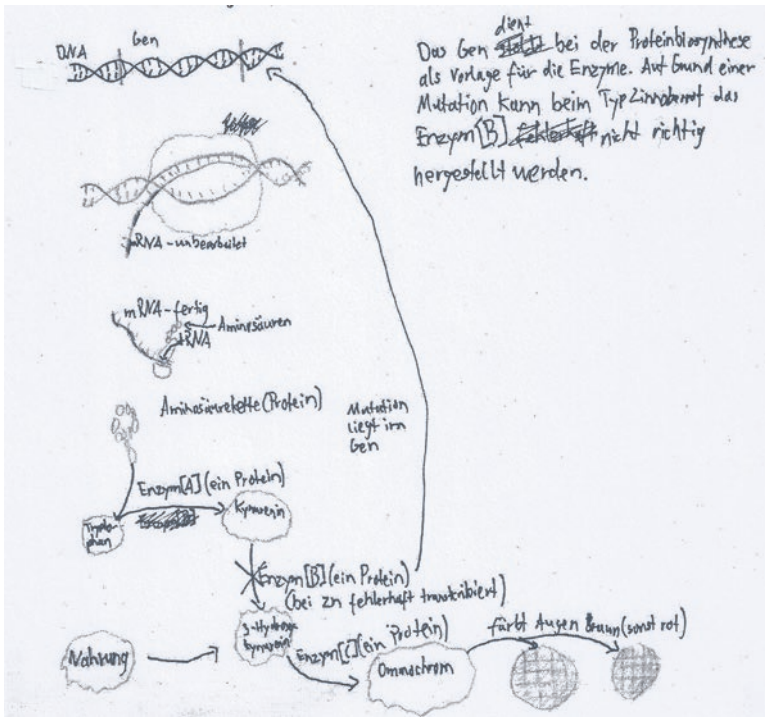 DNA
Gen
Das Gen dient bei der Proteinbiosynthese
als Vorlage für die Enzyme. Auf Grund einer
Mutation kann beim Typ Zinnoberrot das
Enzym [B] nicht richtig
hergestellt werden.
mRNA-unbearbeitet
mRNA-fertig
Aminosäuren
tRNA
Aminosäurekette (Protein)
Mutation
liegt im
Gen
Enzym[A] (ein Protein)
Trypto-
phan
Kynurenin
Enzym[B] (ein Protein)
(bei zn fehlerhaft transkribiert)
3-Hydroxy
kynurenin
Nahrung
Enzym[C] (ein Protein)
Ommochrom
färbt Augen braun (sonst rot)